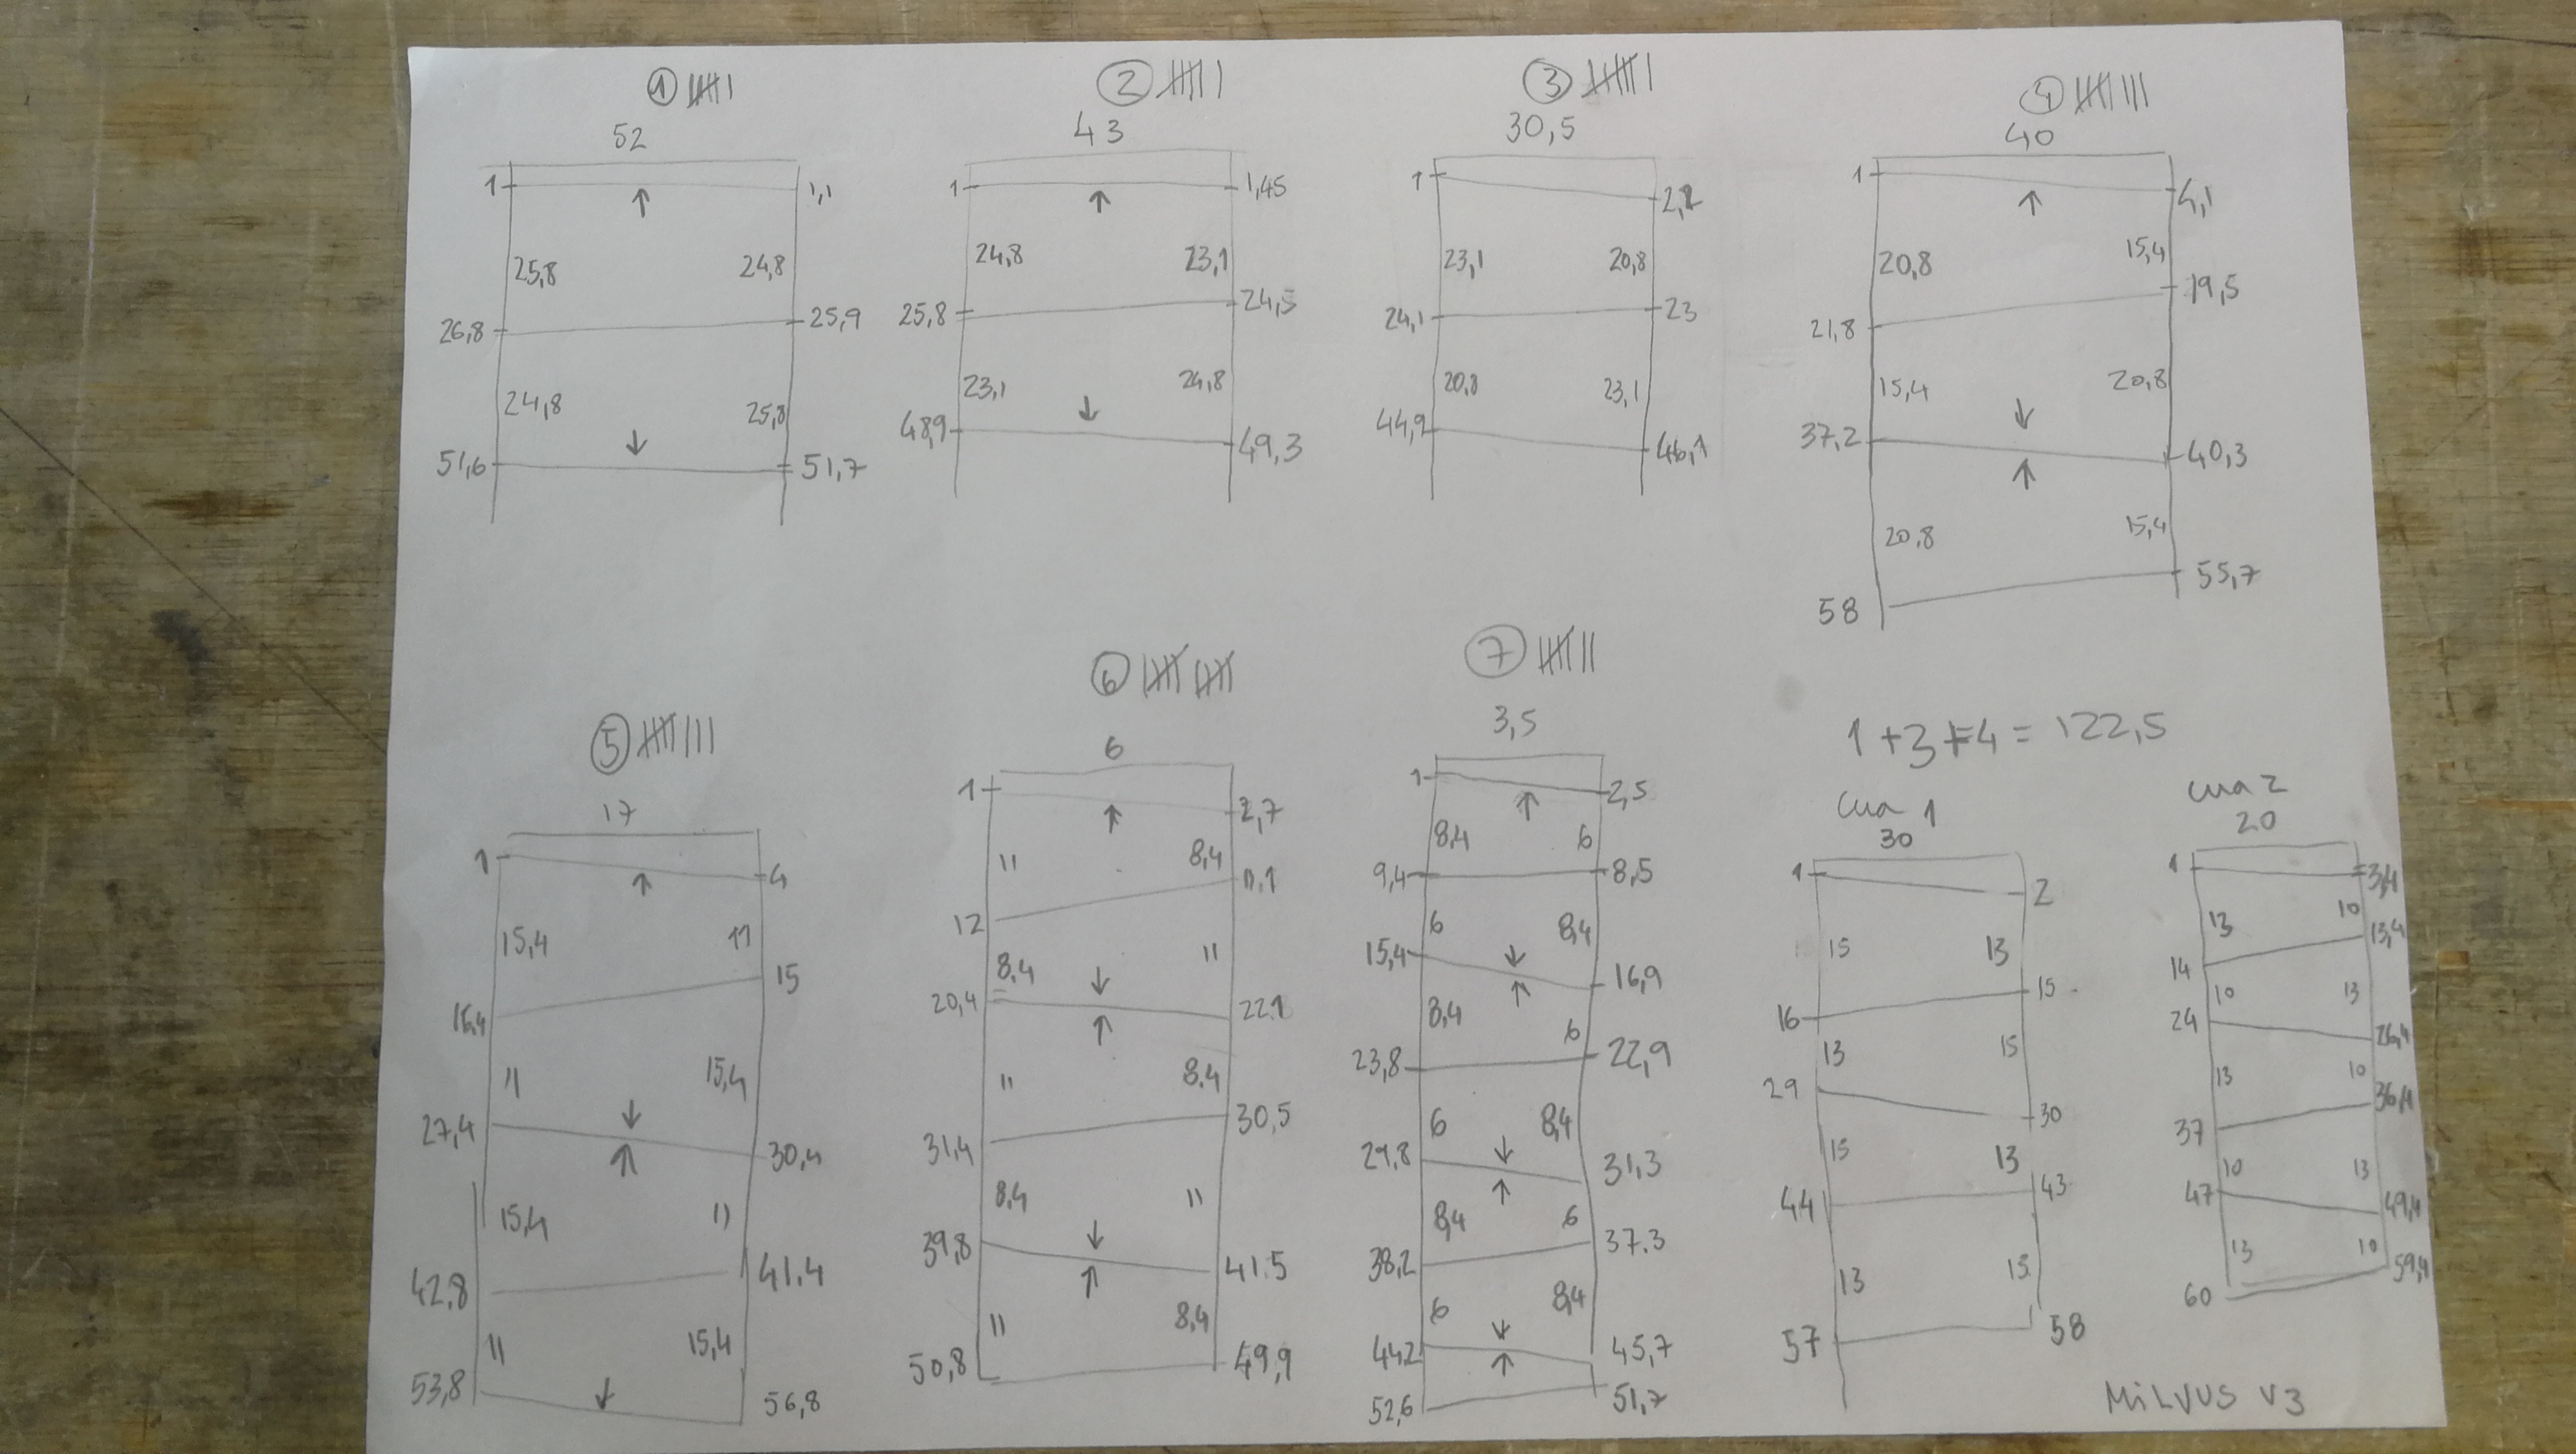 ① 𝍸 |
52
1 1,1
25,8 24,8
26,8 25,9
24,8 25,8
51,6 51,7
② 𝍸 |
43
1 1,45
24,8 23,1
25,8 24,5
23,1 24,8
48,9 49,3
③ 𝍸 |
30,5
1
23,1 20,8
24,1 23
20,8 23,1
44,9 46,1
④ 𝍸 |||
40
1 4,1
20,8 15,4
21,8 19,5
15,4 20,8
37,2 40,3
20,8 15,4
58 55,7
⑤ 𝍸 |||
17
1 4
15,4 11
16,4 15
11 15,4
27,4 30,4
15,4 11
42,8 41,4
11 15,4
53,8 56,8
⑥ 𝍸 𝍸
6
1 2,7
11 8,4
12 11.1
8,4 11
20,4 22.1
11 8.4
31,4 30,5
8,4 11
39,8 41.5
11 8,4
50,8 49,9
⑦ 𝍸 ||
3,5
1 2,5
8,4 6
9,4 8,5
6 8,4
15,4 16,9
8,4 6
23,8 22,9
6 8,4
29,8 31,3
8,4 6
38,2 37.3
6 8,4
44,2 45,7
52,6 51,7
1 + 3 + 4 = 122,5
cua 1
30
1 2
15 13
16 15
13 15
29 30
15 13
44 43
13 15
57 58
cua 2
20
1 3,4
13 10
14 13,4
10 13
24 26,4
13 10
37 36,4
10 13
47 49,4
13 10
60 59,4
MiLVUS V3